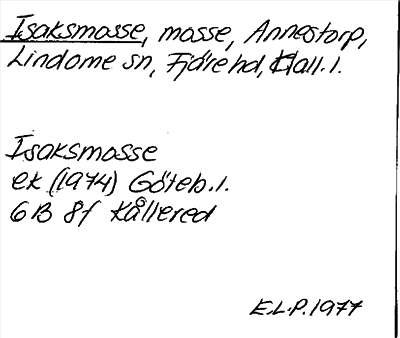 Isaksmosse, mosse, Annestorp,
Lindome sn, Fjäre hd, Hall. l.
Isaksmosse
ek (1974) Göteb. l.
6B 8f Kållered
E.L.P. 1977